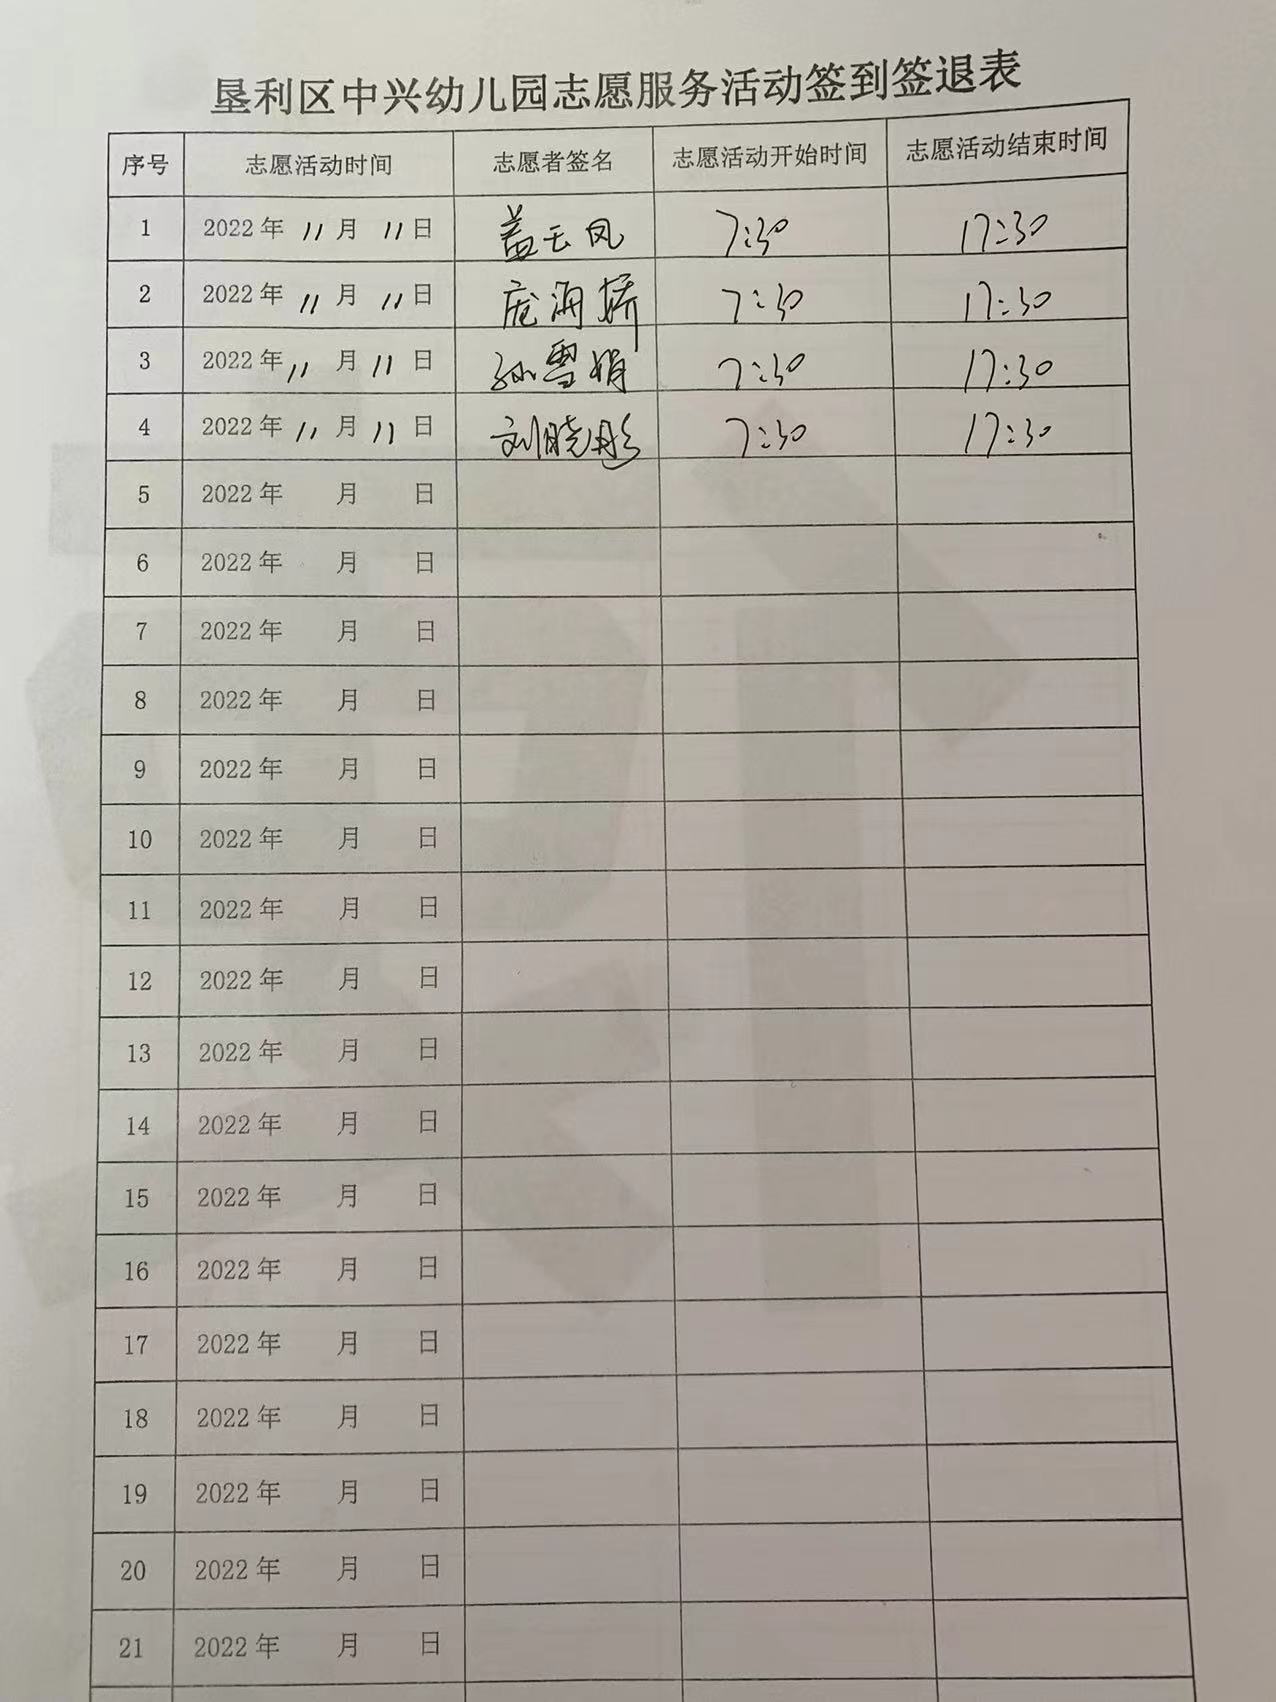 垦利区中兴幼儿园志愿服务活动签到签退表
序号 志愿活动时间 志愿者签名 志愿活动开始时间 志愿活动结束时间
1 2022年 11月 11日 盖云凤 7:30 17:30
2 2022年 11月 11日 庞海娇 7:30 17:30
3 2022年 11月 11日 孙雪娟 7:30 17:30
4 2022年 11月 11日 刘晓彤 7:30 17:30
5 2022年 月 日
6 2022年 月 日
7 2022年 月 日
8 2022年 月 日
9 2022年 月 日
10 2022年 月 日
11 2022年 月 日
12 2022年 月 日
13 2022年 月 日
14 2022年 月 日
15 2022年 月 日
16 2022年 月 日
17 2022年 月 日
18 2022年 月 日
19 2022年 月 日
20 2022年 月 日
21 2022年 月 日